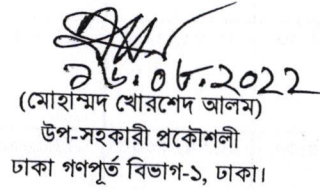 ১৬.০৮.2022
(মোহাম্মদ খোরশেদ আলম)
উপ-সহকারী প্রকৌশলী
ঢাকা গণপূর্ত বিভাগ-১, ঢাকা।